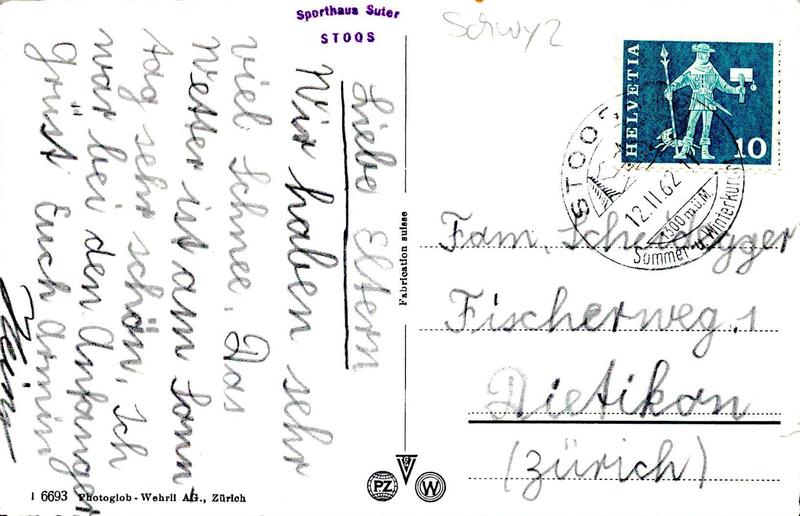 Sporthaus Suter
STOOS
Schwyz
Liebe Eltern
Wir haben sehr
viel Schnee. Das
Wetter ist am Sonn
tag sehr schön. Ich
war bei den Anfänger
grüst Euch Armin
HELVETIA
10
STOOS
12.II.62
1300 m.ü.M.
Sommer- u. Winterkurort
Fam. Scheidegger
Fischerweg. 1
Dietikon
(Zürich)
Fabrication suisse
I 6693 Photoglob-Wehrli AG., Zürich
PZ
W